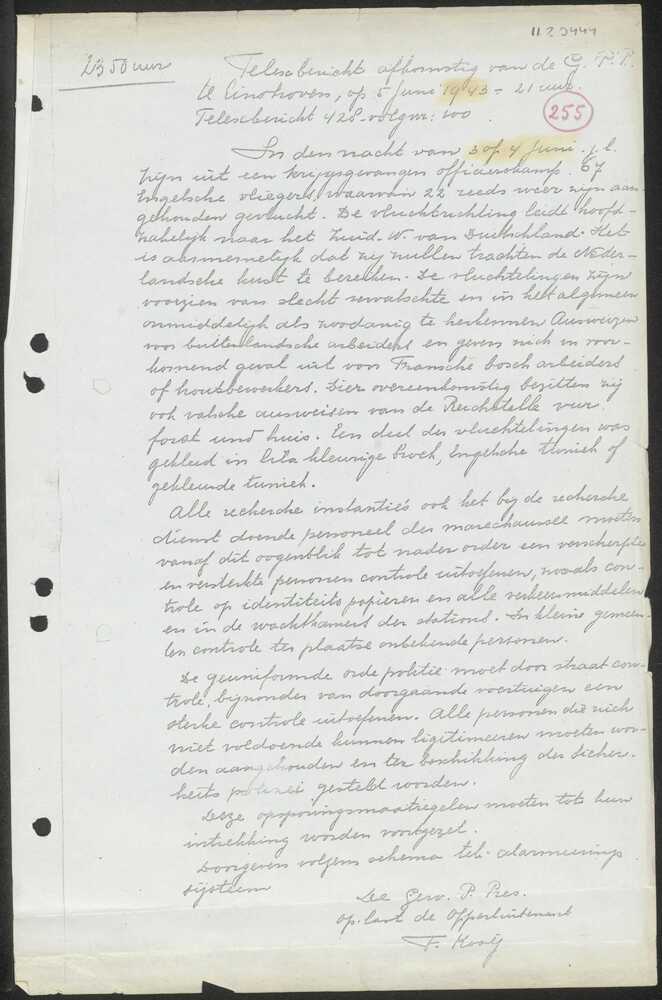 11 2 3444
23 50 uur
Telexbericht afkomstig van de G. P. P.
te Eindhoven, op 5 Juni 1943 - 21 uur.
Telexbericht 428 - volgnr: 100.
255
In den nacht van 3 op 4 Juni j.l.
zijn uit een krijgsgevangen officierskamp 67
Engelsche vliegers, waarvan 22 reeds weer zijn aan-
gehouden gevlucht. De vluchtrichting leidt hoofd-
zakelijk naar het Zuid. W. van Duitschland. Het
is aannemelijk dat zij zullen trachten de Neder-
landsche kust te bereiken. De vluchtelingen zijn
voorzien van slecht vervalschte en in het algemeen
onmiddelijk als zoodanig te herkennen Ausweizen
voor buitenlandsche arbeiders en geven zich in voor-
komend geval uit voor Fransche bosch arbeiders
of houtbewerkers. Dier overeenkomstig bezitten zij
ook valsche ausweisen van de Reichstelle vur
forst und huis. Een deel der vluchtelingen was
gekleed in lila kleurige broek, Engelsche tuniek of
gekleurde tuniek.
Alle recherche instantiës ook het bij de recherche
dienst doende personeel der marechaussee moeten
vanaf dit oogenblik tot nader order een verscherpte
en versterkte personen controle uitoefenen, zooals con-
trole op identiteits papieren en alle verkeersmiddelen
en in de wachtkamers der stations. In kleine gemeen-
ten controle ter plaatse onbekende personen.
De geuniformde orde politie moet door straat con-
trole, bijzonder van doorgaande voertuigen een
sterke controle uitoefenen. Alle personen die zich
niet voldoende kunnen legitimeeren moeten wor-
den aangehouden en ter beschikking der Sicher-
heits polizei gesteld worden.
Deze opsporingsmaatregelen moeten tot hun
intrekking worden voortgezet.
Doorgeven volgens schema tel. alarmeerings
systeem
De Gew. P. Pres.
op. last de Opperluitenant
F. Kooij